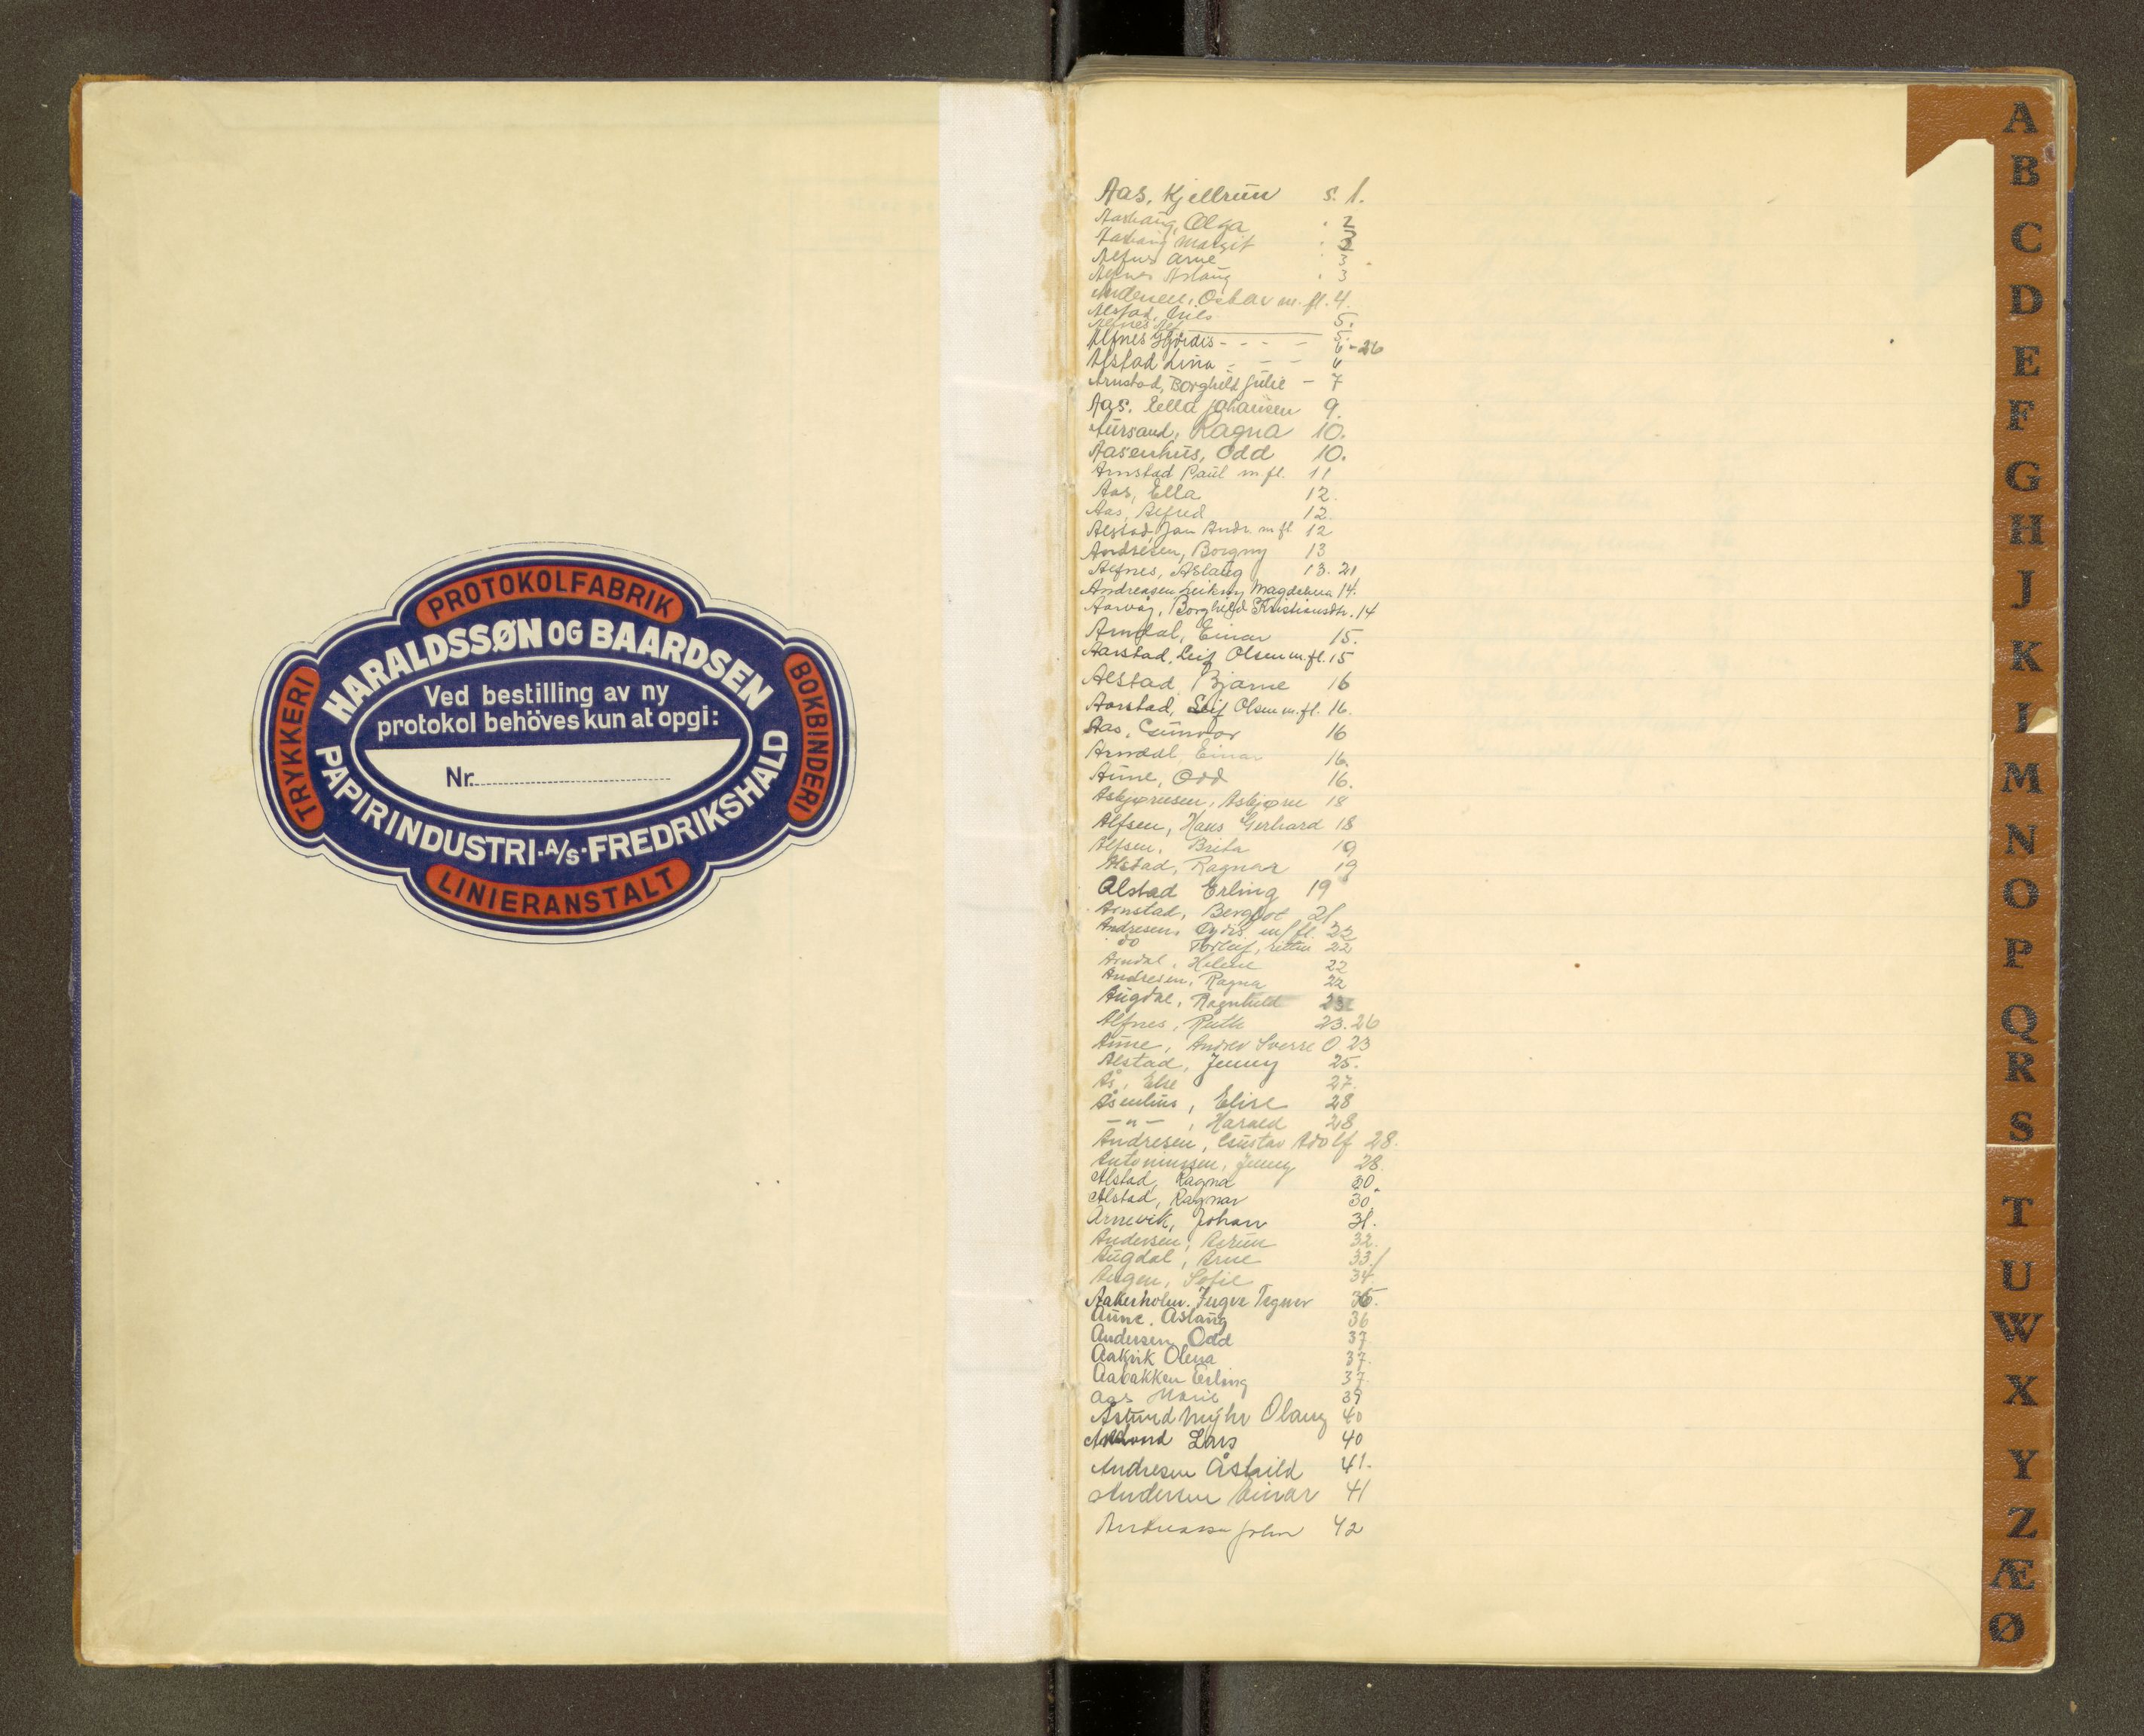 PROTOKOLFABRIK
HARALDSSØN OG BAARDSEN
TRYKKERI
BOKBINDERI
Ved bestilling av ny
protokol behöves kun at opgi:
Nr.
PAPIRINDUSTRI·A/S·FREDRIKSHALD
LINIERANSTALT
Aas, Kjellrun s. 1.
Aashaug, Olga " 2
Margit
Alfnes Arne " 3
Alfnes Aslaug " 3
Andersen, Oskar m. fl. 4.
Alstad, Nils 5.
Alfnes 5.
Alfnes Hjørdis - - - - 6-26
Alstad Lina - - - 6
Arnstad, Borghild Julie - 7
Aas. Ella Johansen 9.
Aursand, Ragna 10.
Aasenhus, Odd 10.
Arnstad Paul m fl. 11
Aas, Ella 12.
Aas, Alfred 12.
Alstad, Jan Andr. m fl 12
Andresen, Borgny 13
Alfnes, Aslaug 13. 21
Andreasen Leikny Magdalena 14.
Aarvåg, Borghild Kristiansdtr. 14
Arndal, Einar 15.
Aarstad, Leif Olsen m. fl. 15
Alstad, Bjarne 16
Aarstad, Leif Olsen m. fl. 16.
Aas, Gunvor 16
Arndal, Einar 16.
Aune, Odd 16.
Asbjørnsen, Asbjørn 18
Alfsen, Hans Gerhard 18
Alfsen, Brita 19
Alstad, Ragnar 19
Alstad Erling 19
Arnstad, Bergljot 21
Andresen, m/fl. 22
do Torleif, 22
Arndal, Helene 22
Andresen, Ragna 22
Augdal, Ragnhild
Alfnes, Ruth 23. 26
Aune, Andrev Sverre O. 23
Alstad, Jenny 25.
Ås, Else 27.
Åsenhus, Elise 28
-"- , Harald 28
Andresen, Gustav Adolf 28.
Antoniussen, Jenny 28.
Alstad, Ragna 30.
Alstad, Ragnar 30.
Arnevik, Johan 31.
Andersen, Asrun 32.
Augdal, Arne 33.
Sofie 34.
Aakerholm. Yngve Tegner
Aune. Aslaug 36
Andersen Odd 37
Aakvik Olena 37.
Aabakken Erling 37.
Aas Marie 39
Olaug 40
Lars 40
Andresen Åshild 41.
Andersen Einar 41
John 42
A
B
C
D
E
F
G
H
J
K
L
M
N
O
P
Q
R
S
T
U
W
X
Y
Z
Æ
Ø